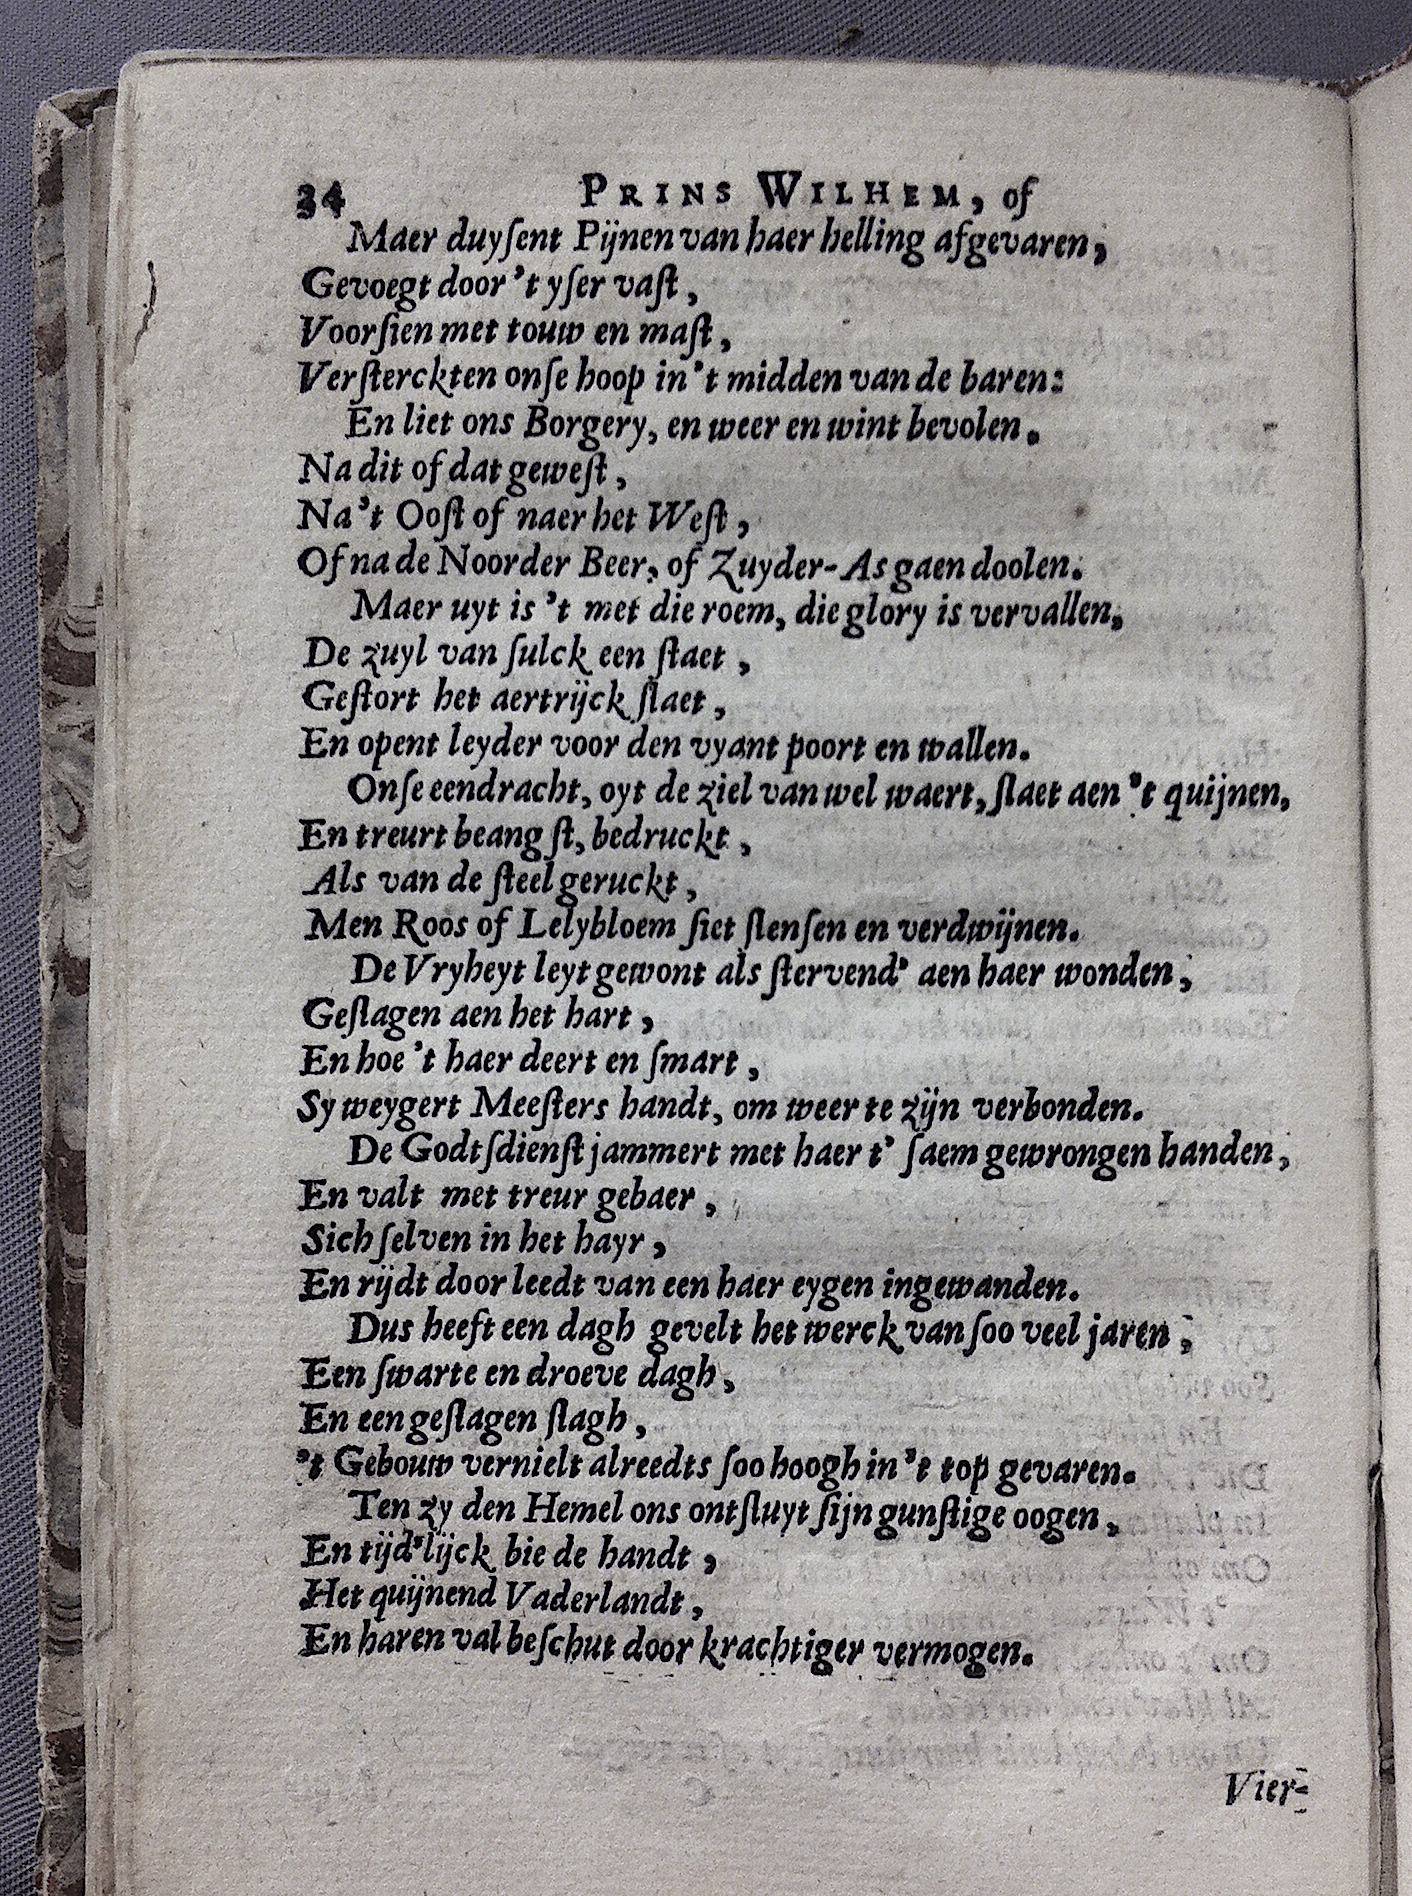 34 PRINS WILHEM, of
Maer duyſent Pijnen van haer helling afgevaren,
Gevoegt door 't yſer vaſt,
Voorſien met touw en maſt,
Verſterckten onſe hoop in 't midden van de baren:
En liet ons Borgery, en weer en wint bevolen.
Na dit of dat geweſt,
Na 't Ooſt of naer het Weſt,
Of na de Noorder Beer, of Zuyder-As gaen doolen.
Maer uyt is 't met die roem, die glory is vervallen,
De zuyl van ſulck een ſtaet,
Geſtort het aertrijck ſlaet,
En opent leyder voor den vyant poort en wallen.
Onſe eendracht, oyt de ziel van wel waert, ſlaet aen 't quijnen,
En treurt beangſt, bedruckt,
Als van de ſteel geruckt,
Men Roos of Lelybloem ſiet ſlenſen en verdwijnen.
De Vryheyt leyt gewont als ſtervend' aen haer wonden,
Geſlagen aen het hart,
En hoe 't haer deert en ſmart,
Sy weygert Meeſters handt, om weer te zijn verbonden.
De Godtſdienſt jammert met haer t' ſaem gewrongen handen,
En valt met treur gebaer,
Sich ſelven in het hayr,
En rijdt door leedt van een haer eygen ingewanden.
Dus heeft een dagh gevelt het werck van ſoo veel jaren,
Een ſwarte en droeve dagh,
En een geſlagen ſlagh,
't Gebouw vernielt alreedts ſoo hoogh in 't top gevaren.
Ten zy den Hemel ons ontſluyt ſijn gunſtige oogen,
En tijd'lijck bie de handt,
Het quijnend Vaderlandt,
En haren val beſchut door krachtiger vermogen.
Vier-